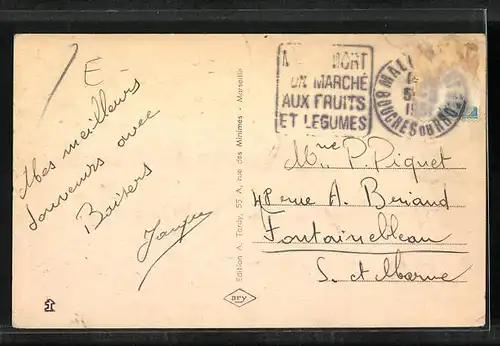 E
Mes meilleurs
Souvenirs avec
Baisers
Edition A. Tardy, 55 A, rue des Minimes - Marseille
ary
MARCHÉ
AUX FRUITS
ET LEGUMES
BOUCHES DU RHONE
Mme P. Piquet
48 rue A. Briand
Fontainebleau
S. et Marne